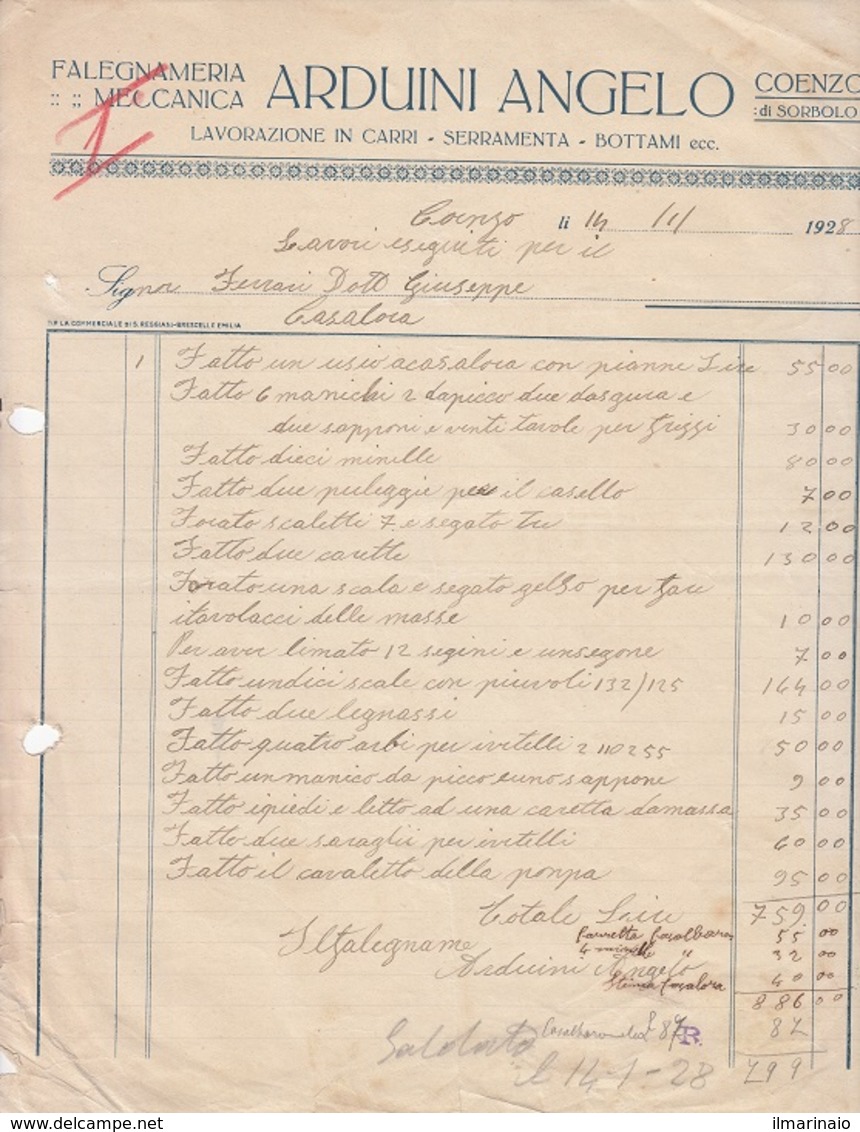 FALEGNAMERIA
:: ;; MECCANICA
ARDUINI ANGELO
COENZO
:di SORBOLO
LAVORAZIONE IN CARRI - SERRAMENTA - BOTTAMI ecc.
Coenzo li 14 / 1 / 1928
Lavori eseguiti per il
Signor Ferrari Dott Giuseppe
Casalora
TIP. LA COMMERCIALE di S. REGGIANI-BRESCELLO EMILIA
1 Fatto un usio acasalora con pianne Lire 55 00
Fatto 6 manichi 2 dapicco due dasgura e
due sapponi e venti tavole per 30 00
Fatto dieci minelle 80 00
Fatto due puleggie per il casello 7 00
Forato scaletti 7 e segato tre 12 00
Fatto due carette 130 00
Forato una scala e segato gelso per fare
itavolacci delle masse 10 00
Per aver limato 12 segini e unsegone 7 00
Fatto undici scale con piuvoli 132/125 164 00
Fatto due legnassi 15 00
Fatto quatro arbi per ivitelli 2 110 2 55 50 00
Fatto un manico da picco e uno sappone 9 00
Fatto ipiedi e letto ad una caretta damassa 35 00
Fatto due saraglii per ivitelli 60 00
Fatto il cavaletto della ponpa 95 00
Totale Lire 759 00
55 00
Il Falegname 4 minelle " 32 00
Arduini Angelo
Casalora 40 00
886 00
87 R. 87
Saldato
il 14-1-28 799
delcampe.net
ilmarinaio